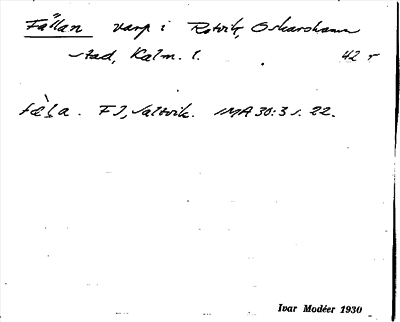 Fällan varp i Rotvik, Oskarshamn
stad, Kalm. l. 42 r
FJ, Saltvik. IMA 30:3 s. 22.
Ivar Modéer 1930